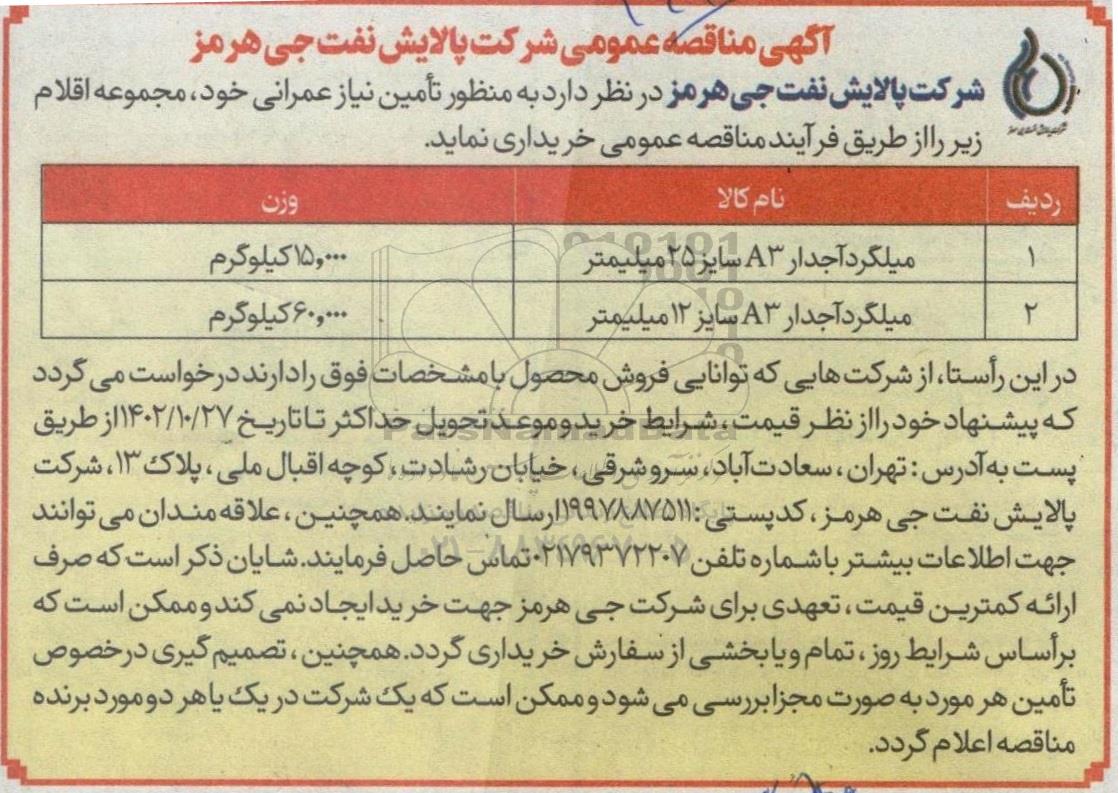 آگهی مناقصه عمومی شرکت پالایش نفت جی هرمز
شرکت پالایش نفت جی هرمز در نظر دارد به منظور تأمین نیاز عمرانی خود، مجموعه اقلام
زیر را از طریق فرآیند مناقصه عمومی خریداری نماید.
ردیف نام کالا وزن
۱ میلگرد آجدار A۳ سایز ۲۵ میلیمتر ۱۵,۰۰۰ کیلوگرم
۲ میلگرد آجدار A۳ سایز ۱۲ میلیمتر ۶۰,۰۰۰ کیلوگرم
در این رأستا، از شرکت هایی که توانایی فروش محصول با مشخصات فوق را دارند درخواست می گردد
که پیشنهاد خود را از نظر قیمت، شرایط خرید و موعد تحویل حداکثر تا تاریخ ۱۴۰۲/۱۰/۲۷ از طریق
پست به آدرس: تهران، سعادت آباد، سرو شرقی، خیابان رشادت، کوچه اقبال ملی، پلاک ۱۳، شرکت
پالایش نفت جی هرمز، کدپستی: ۱۹۹۷۸۸۷۵۱۱ ارسال نمایند. همچنین، علاقه مندان می توانند
جهت اطلاعات بیشتر با شماره تلفن ۰۲۱۷۹۳۷۲۲۰۷ تماس حاصل فرمایند. شایان ذکر است که صرف
ارائه کمترین قیمت، تعهدی برای شرکت جی هرمز جهت خرید ایجاد نمی کند و ممکن است که
برأساس شرایط روز، تمام و یا بخشی از سفارش خریداری گردد. همچنین، تصمیم گیری در خصوص
تأمین هر مورد به صورت مجزا بررسی می شود و ممکن است که یک شرکت در یک یا هر دو مورد برنده
مناقصه اعلام گردد.
ParsNamadData